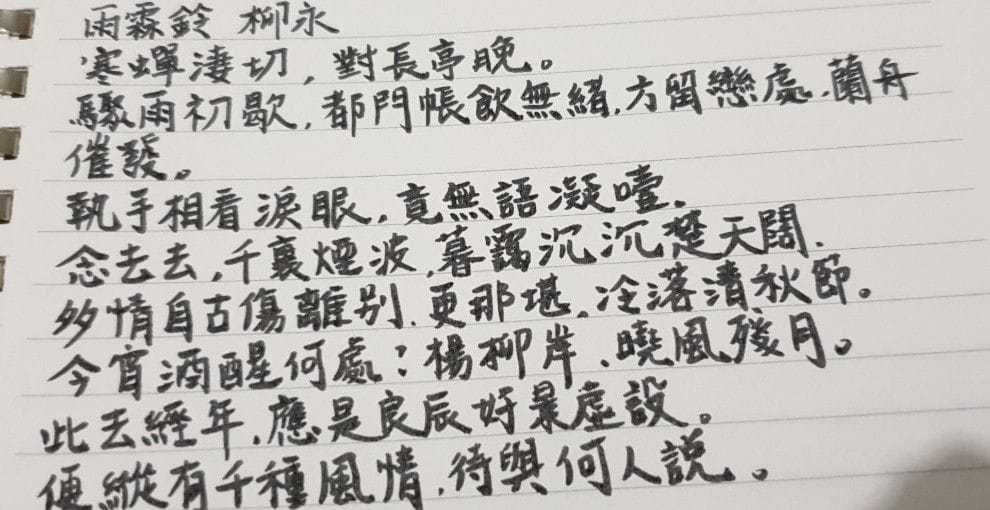 雨霖鈴 柳永
寒蟬淒切,對長亭晚。
驟雨初歇,都門帳飲無緒,方留戀處,蘭舟
催發。
執手相看淚眼,竟無語凝噎.
念去去,千裏煙波,暮靄沉沉楚天闊.
多情自古傷離别,更那堪,冷落清秋節。
今宵酒醒何處:楊柳岸、曉風殘月。
此去經年,應是良辰好景虛設。
便縱有千種風情,待與何人說。